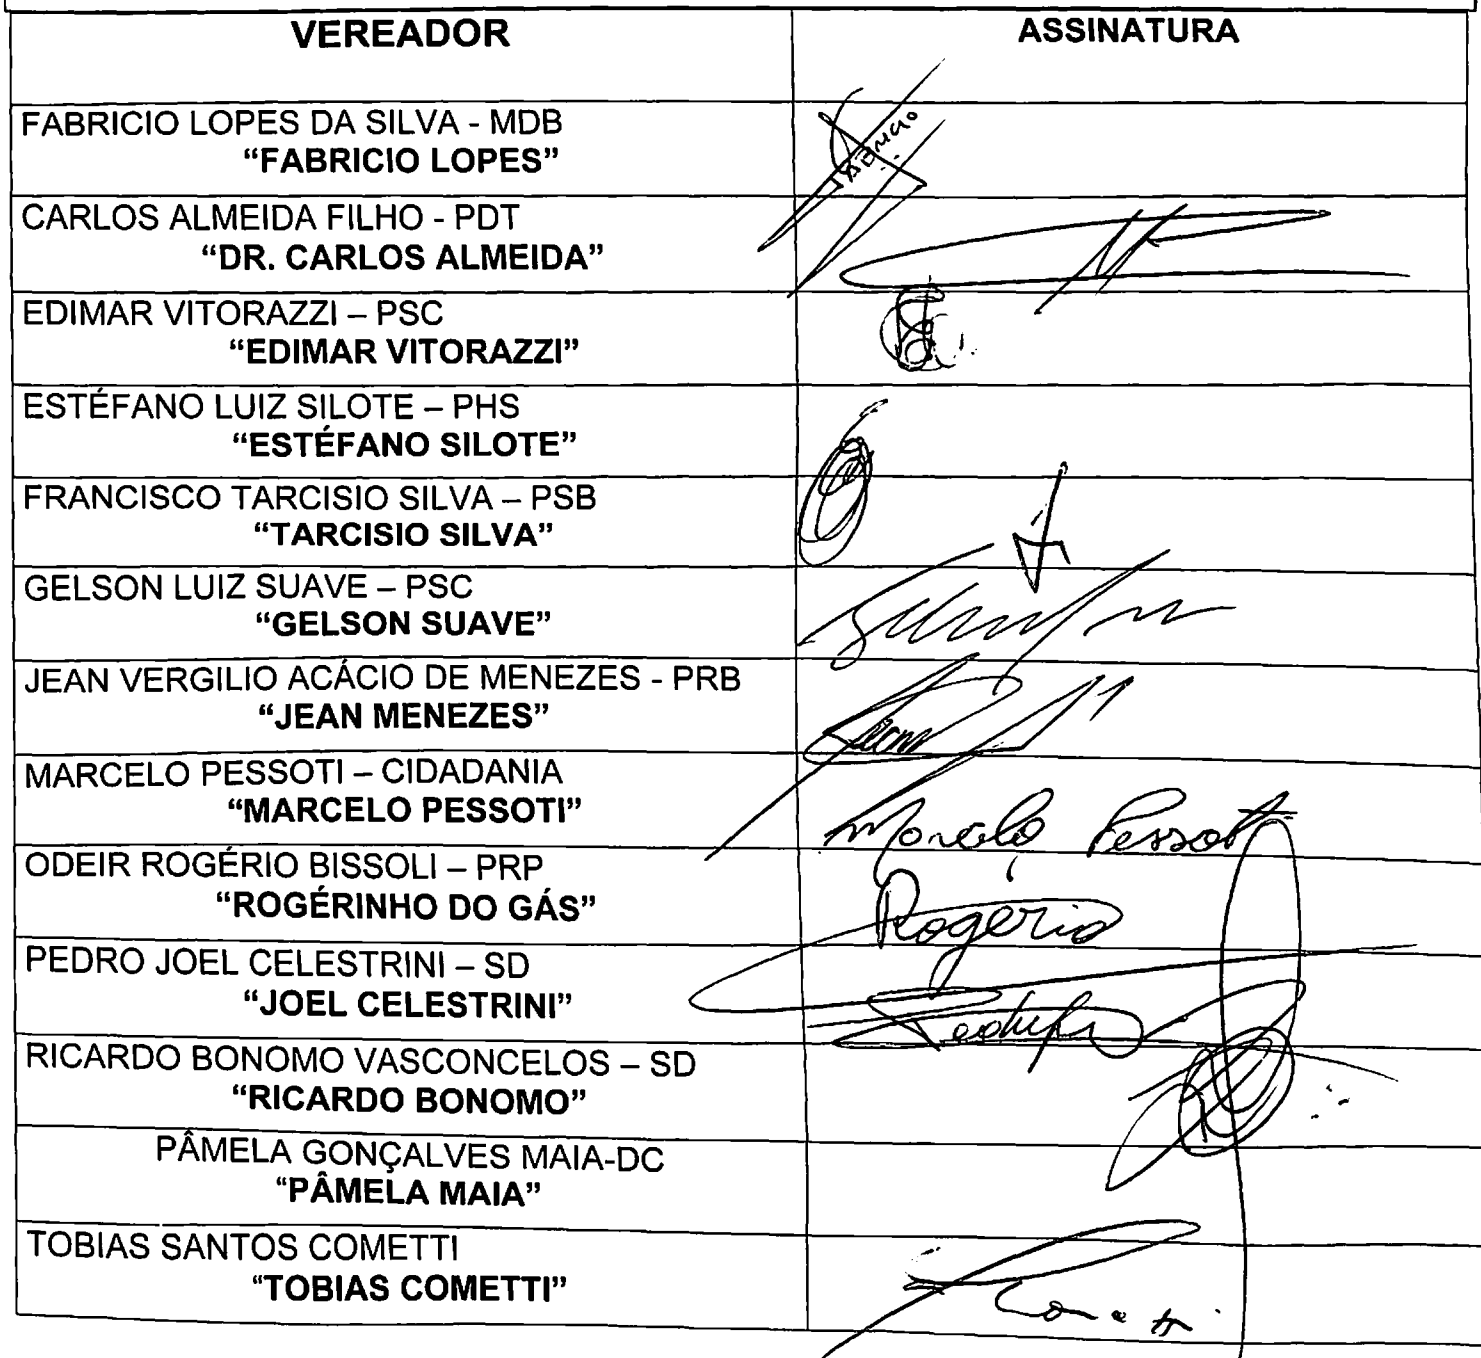 VEREADOR ASSINATURA
FABRICIO LOPES DA SILVA - MDB
“FABRICIO LOPES”
CARLOS ALMEIDA FILHO - PDT
“DR. CARLOS ALMEIDA”
EDIMAR VITORAZZI – PSC
“EDIMAR VITORAZZI”
ESTÉFANO LUIZ SILOTE – PHS
“ESTÉFANO SILOTE”
FRANCISCO TARCISIO SILVA – PSB
“TARCISIO SILVA”
GELSON LUIZ SUAVE – PSC
“GELSON SUAVE”
JEAN VERGILIO ACÁCIO DE MENEZES - PRB
“JEAN MENEZES”
MARCELO PESSOTI – CIDADANIA
“MARCELO PESSOTI”
Marcelo Pessoti
ODEIR ROGÉRIO BISSOLI – PRP
“ROGÉRINHO DO GÁS”
Rogério
PEDRO JOEL CELESTRINI – SD
“JOEL CELESTRINI”
RICARDO BONOMO VASCONCELOS – SD
“RICARDO BONOMO”
PÂMELA GONÇALVES MAIA-DC
“PÂMELA MAIA”
TOBIAS SANTOS COMETTI
“TOBIAS COMETTI”